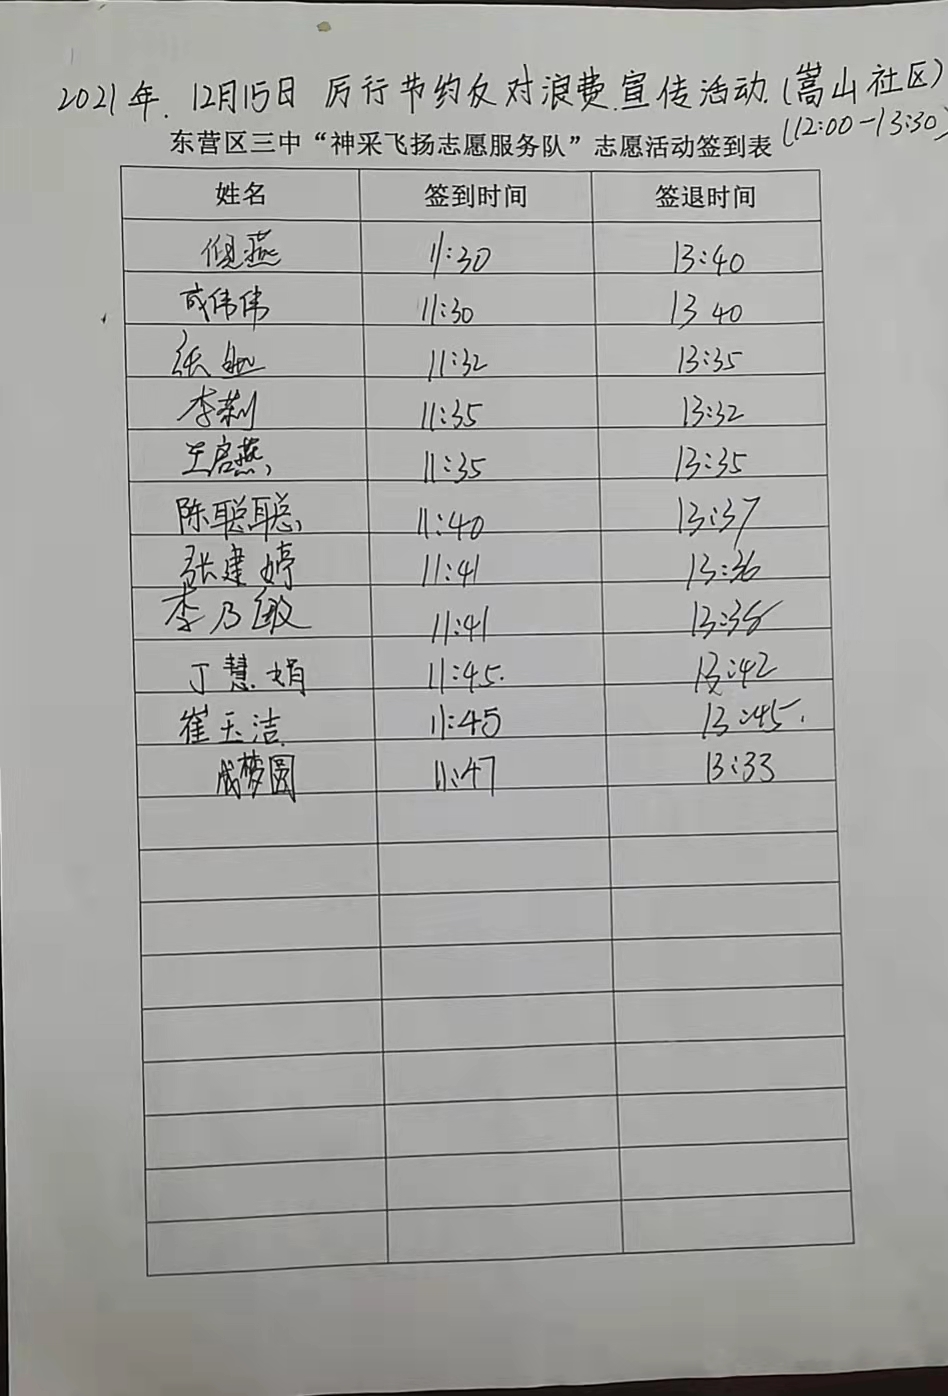 2021年.12月15日 厉行节约反对浪费宣传活动.(嵩山社区)
(12:00-13:30)
东营区三中“神采飞扬志愿服务队”志愿活动签到表
姓名 签到时间 签退时间
倪燕 11:30 13:40
成伟伟 11:30 13 40
张 11:32 13:35
李荣 11:35 13:32
王启燕 11:35 13:35
陈聪聪 11:40 13:37
张建婷 11:41 13:36
李乃敏 11:41 13:35
丁慧娟 11:45. 13:42
崔玉洁 11:45 13:45.
成梦圆 11:47 13:33